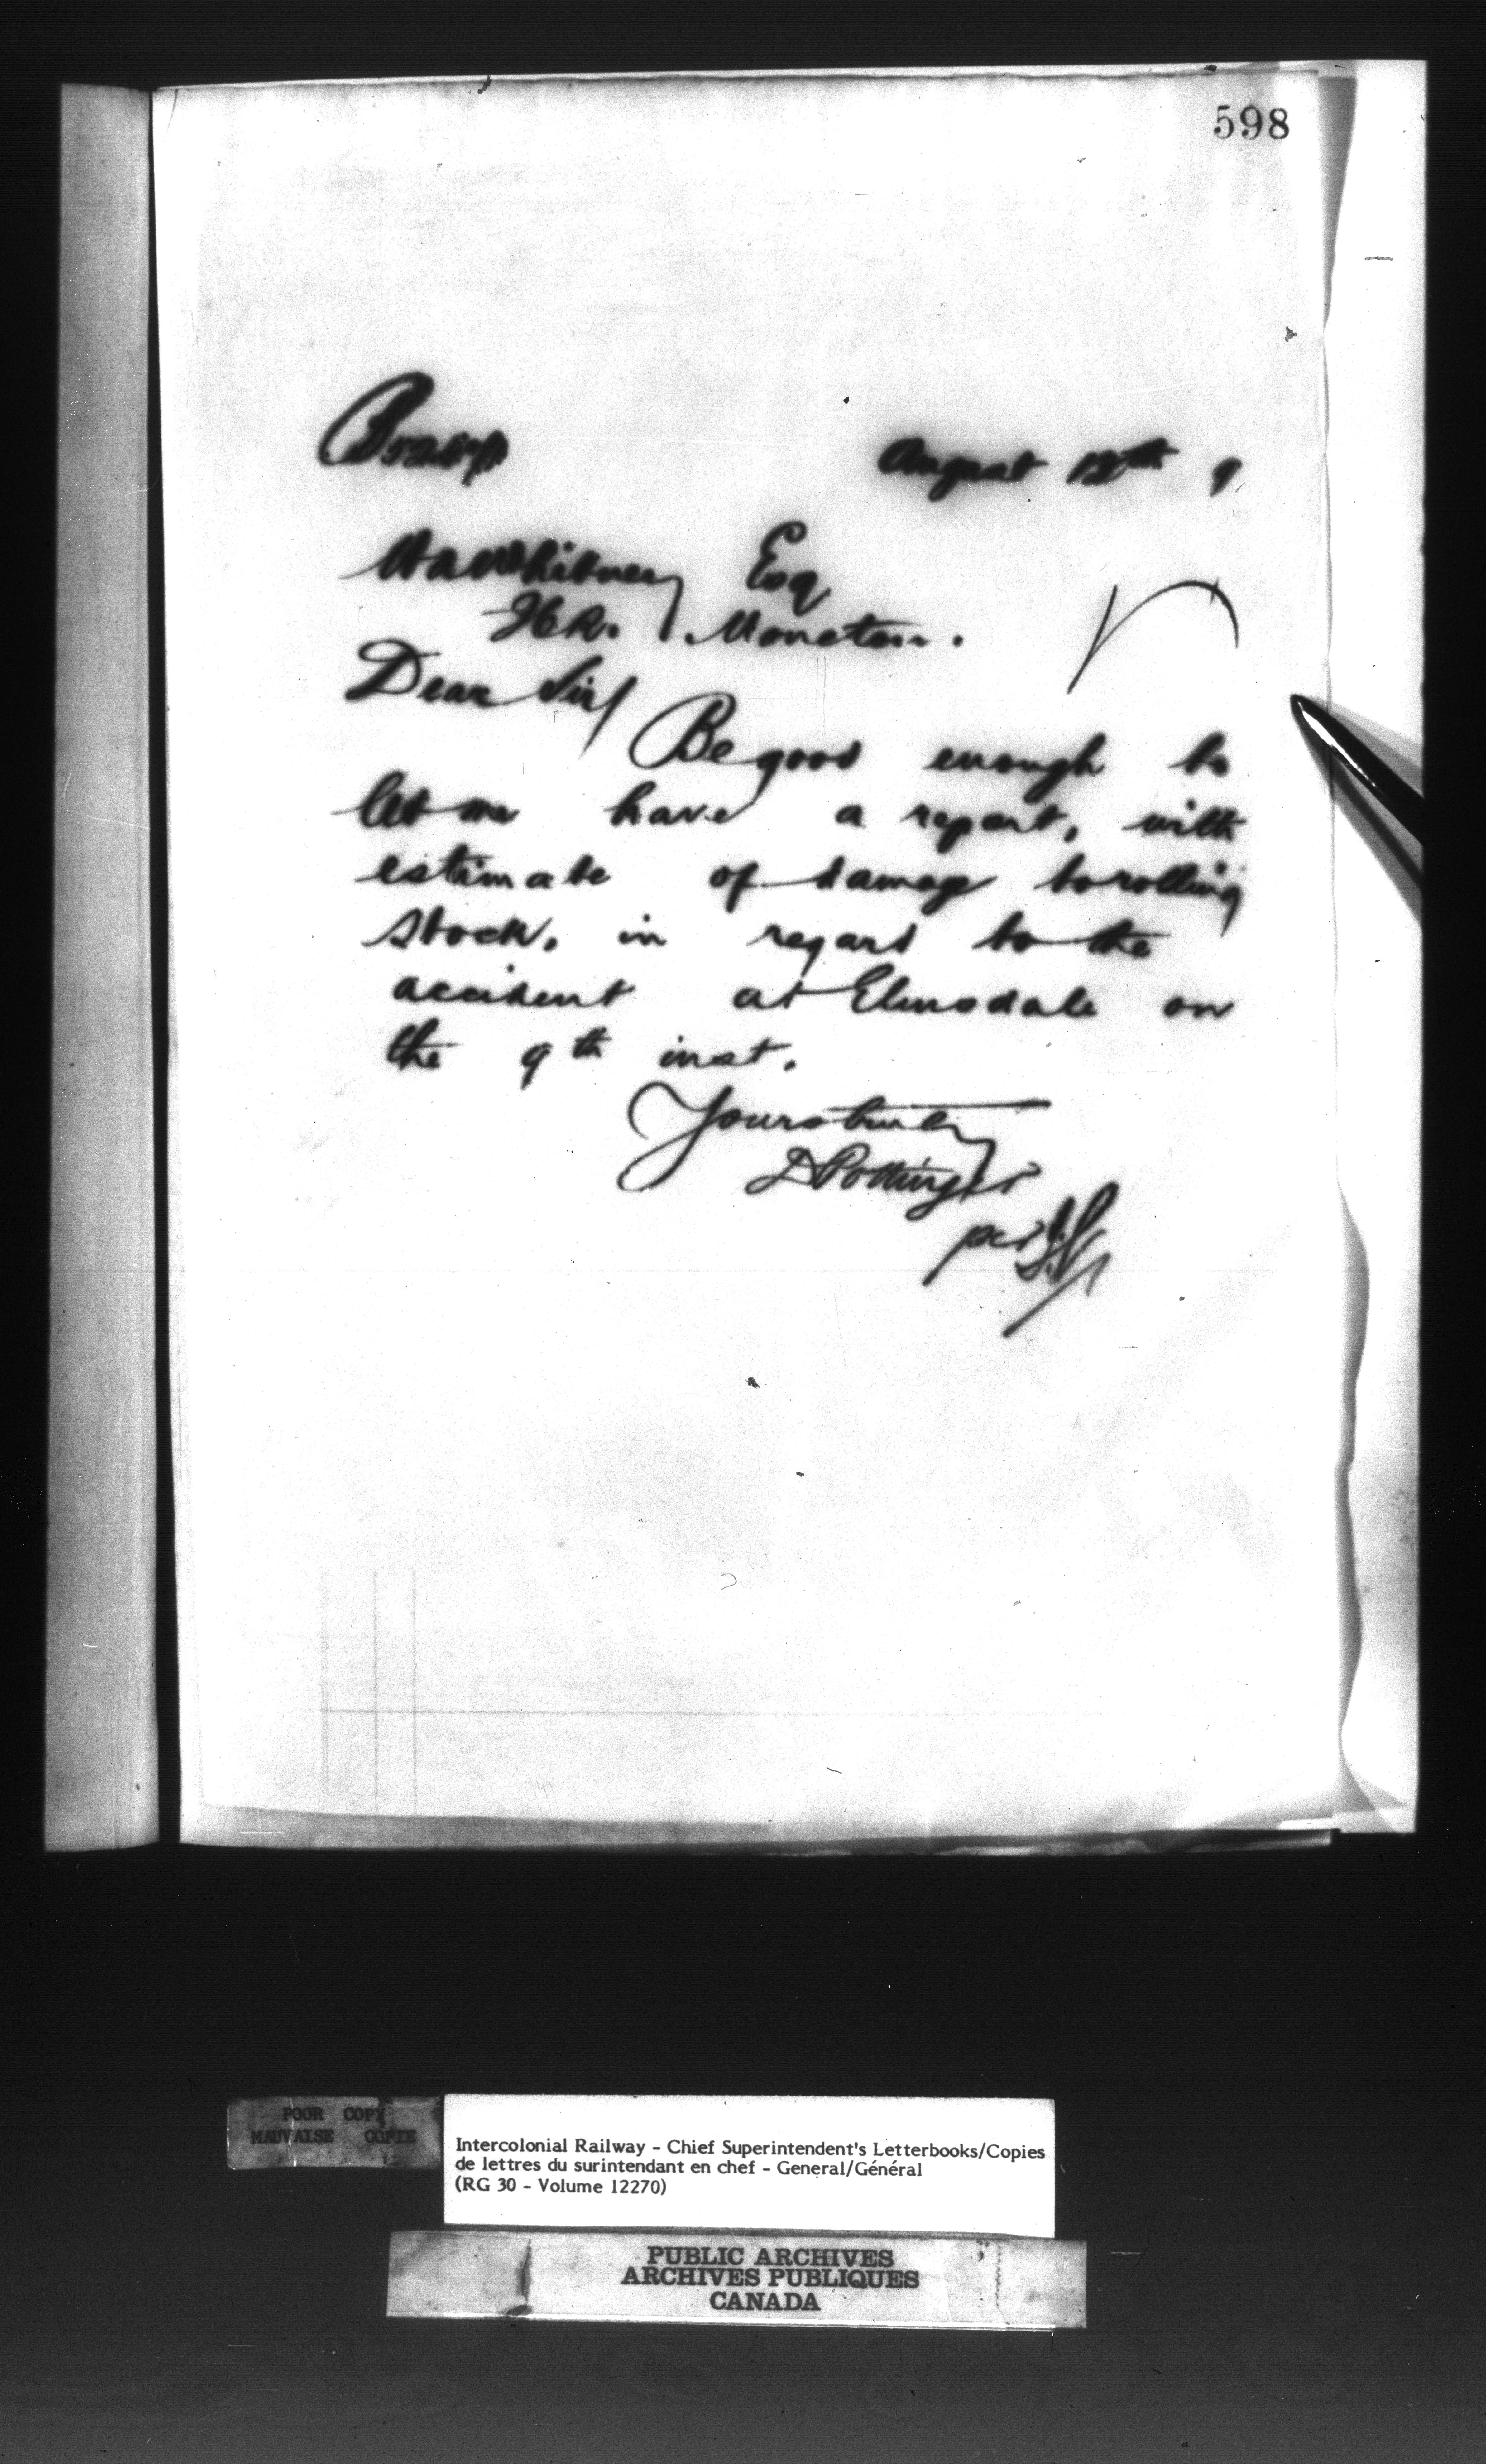 598
August 12th 9
H A Whitney Esq
Moncton.
Dear Sir/
Be good enough to
let me have a report, with
estimate of damage to rolling
stock, in regard to the
accident at Elmsdale on
the 9th inst.
Yours truly
D Pottinger
per
POOR COPY
MAUVAISE COPIE
Intercolonial Railway - Chief Superintendent's Letterbooks/Copies
de lettres du surintendant en chef - General/Général
(RG 30 - Volume 12270)
PUBLIC ARCHIVES
ARCHIVES PUBLIQUES
CANADA